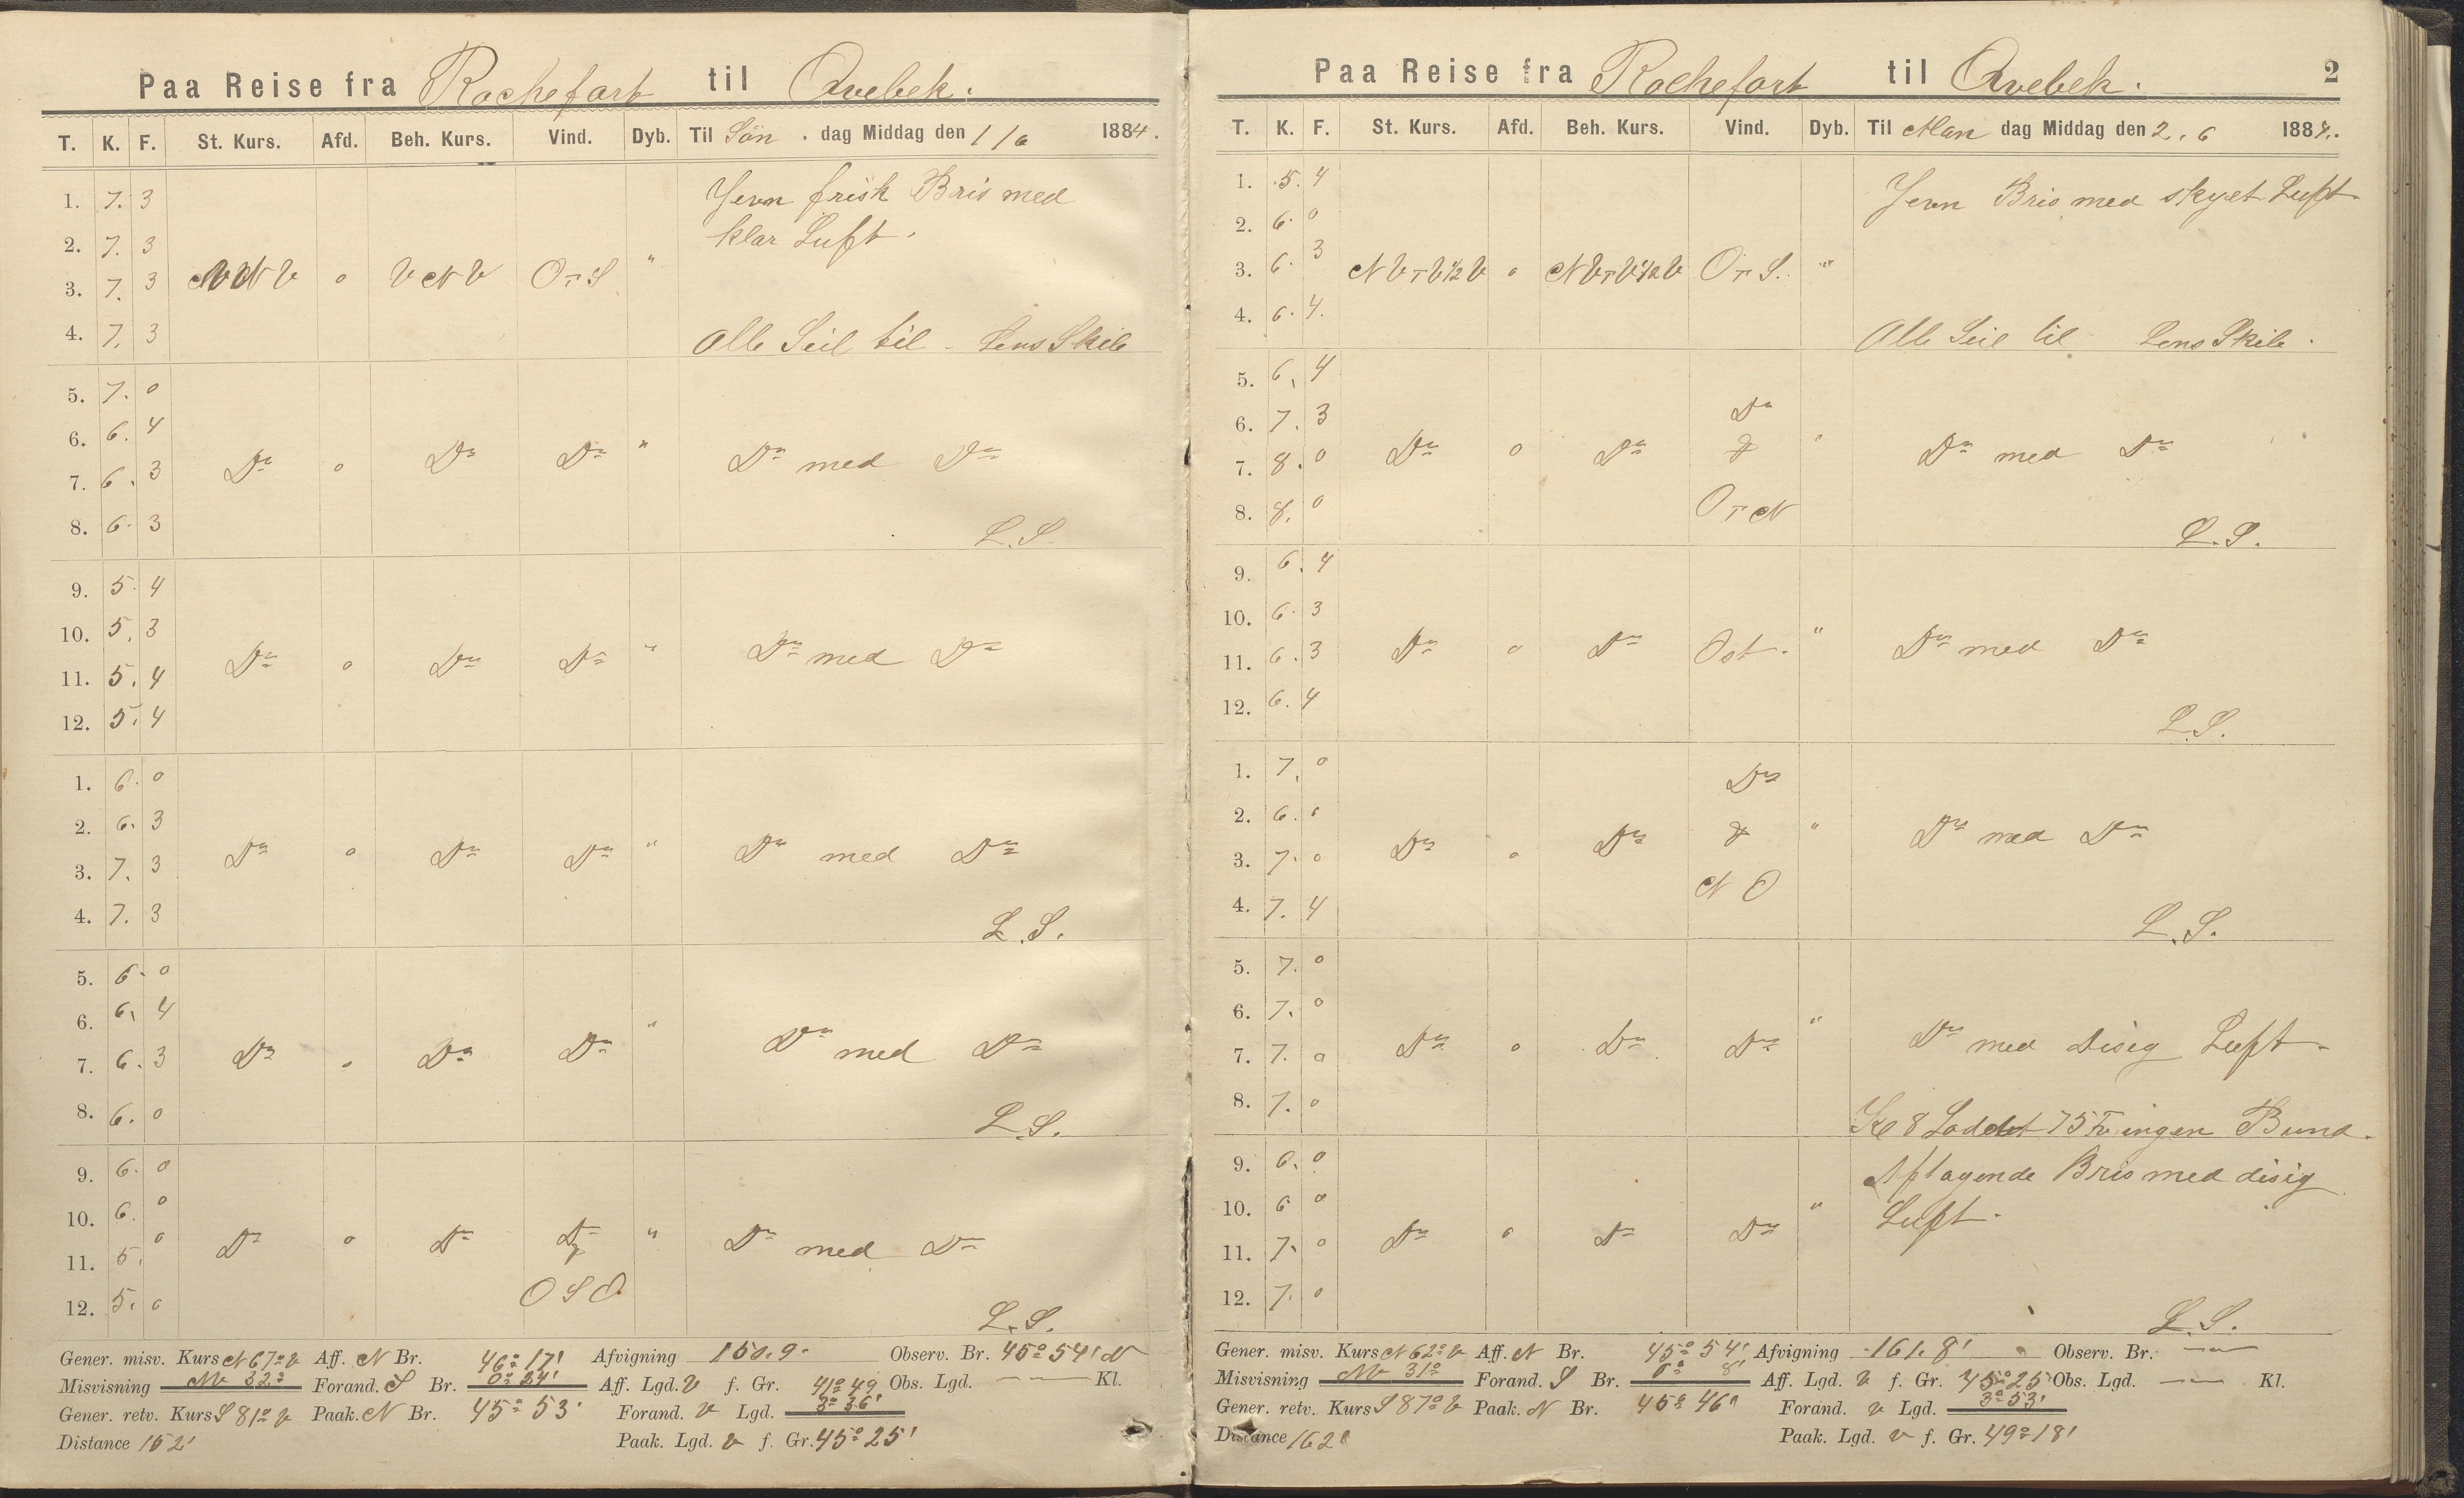 Paa Reise fra Rochefort til Qvebek.
T. K. F. St. Kurs. Afd. Beh. Kurs. Vind. Dyb. Til Sön . dag Middag den 1/6 1884.
1. 7. 3 Jevn frisk Bris med
2. 7. 3 klar Luft.
3. 7. 3 VNV o VNV OTS "
4. 7. 3 Alle Seil til - Lens Skib
5. 7. 0
6. 6. 4
7. 6. 3 Do o Do Do " Do med Do
8. 6. 3 L.S.
9. 5. 4
10. 5. 3
11. 5. 4 Do o Do Do " Do med Do
12. 5. 4
1. 6. 0
2. 6. 3
3. 7. 3 Do o Do Do " Do med Do
4. 7. 3 L.S.
5. 6. 0
6. 6. 4
7. 6. 3 Do o Do Do " Do med Do
8. 6. 0 L.S.
9. 6. 0
10. 6. 0
11. 5. 0 Do o Do Do & " Do med Do
12. 5. 0 OSO L.S.
Gener. misv. Kurs N67°V Aff. N Br. 46°17' Afvigning 150.9. Observ. Br. 45°54' N
Misvisning NV 32° Forand. S Br. 0°24' Aff. Lgd. V f. Gr. 41°49 Obs. Lgd. — Kl.
Gener. retv. Kurs S81°V Paak. N Br. 45°53' Forand. V Lgd. 3°36'
Distance 152' Paak. Lgd. V f. Gr. 45°25'
Paa Reise fra Rochefort til Qvebek. 2
T. K. F. St. Kurs. Afd. Beh. Kurs. Vind. Dyb. Til Man dag Middag den 2.6 1884.
1. 5. 4 Jevn Bris med skyet Luft
2. 6. 0
3. 6. 3 NVTV½V o NVTV½V OTS. "
4. 6. 4. Alle Seil til Lens Skib.
5. 6. 4
6. 7. 3 Do
7. 8. 0 Do o Do & " Do med Do
8. 8. 0 OTN L.S.
9. 6. 4
10. 6. 3
11. 6. 3 Do o Do Ost. " Do med Do
12. 6. 4 L.S.
1. 7. 0 Do
2. 6. 0
3. 7. 0 Do o Do & " Do med Do
4. 7. 4 NO L.S.
5. 7. 0
6. 7. 0
7. 7. 0 Do o Do Do " Do med disig Luft
8. 7. 0 Kl 8 Loddet 75 Fv ingen Bund.
9. 6. 0 Aftagende Bris med disig
10. 6 0 Luft.
11. 7. 0 Do o Do Do "
12. 7. 0 L.S.
Gener. misv. Kurs N62°V Aff. N Br. 45°54' Afvigning 161.8' Observ. Br. —
Misvisning NV 31° Forand. S Br. 0° 8' Aff. Lgd. V f. Gr. 45°25' Obs. Lgd. — Kl.
Gener. retv. Kurs S87°V Paak. N Br. 45°46' Forand. V Lgd. 3°53'
Distance 162' Paak. Lgd. V f. Gr. 49°18'